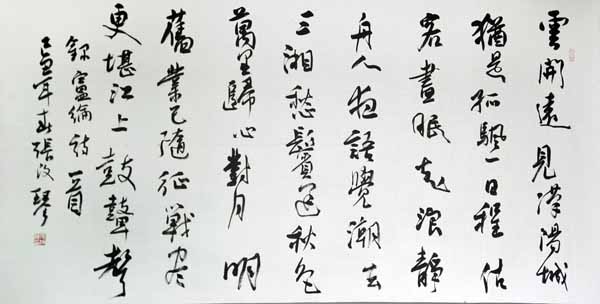 雲開遠見漢陽城
猶是孤颿一日程估
客晝眠知浪靜
舟人夜語覺潮生
三湘愁鬢逢秋色
萬里歸心對月明
舊業已隨征戰盡
更堪江上鼓鼙聲
錄盧綸詩一首
己丑年春張改琴